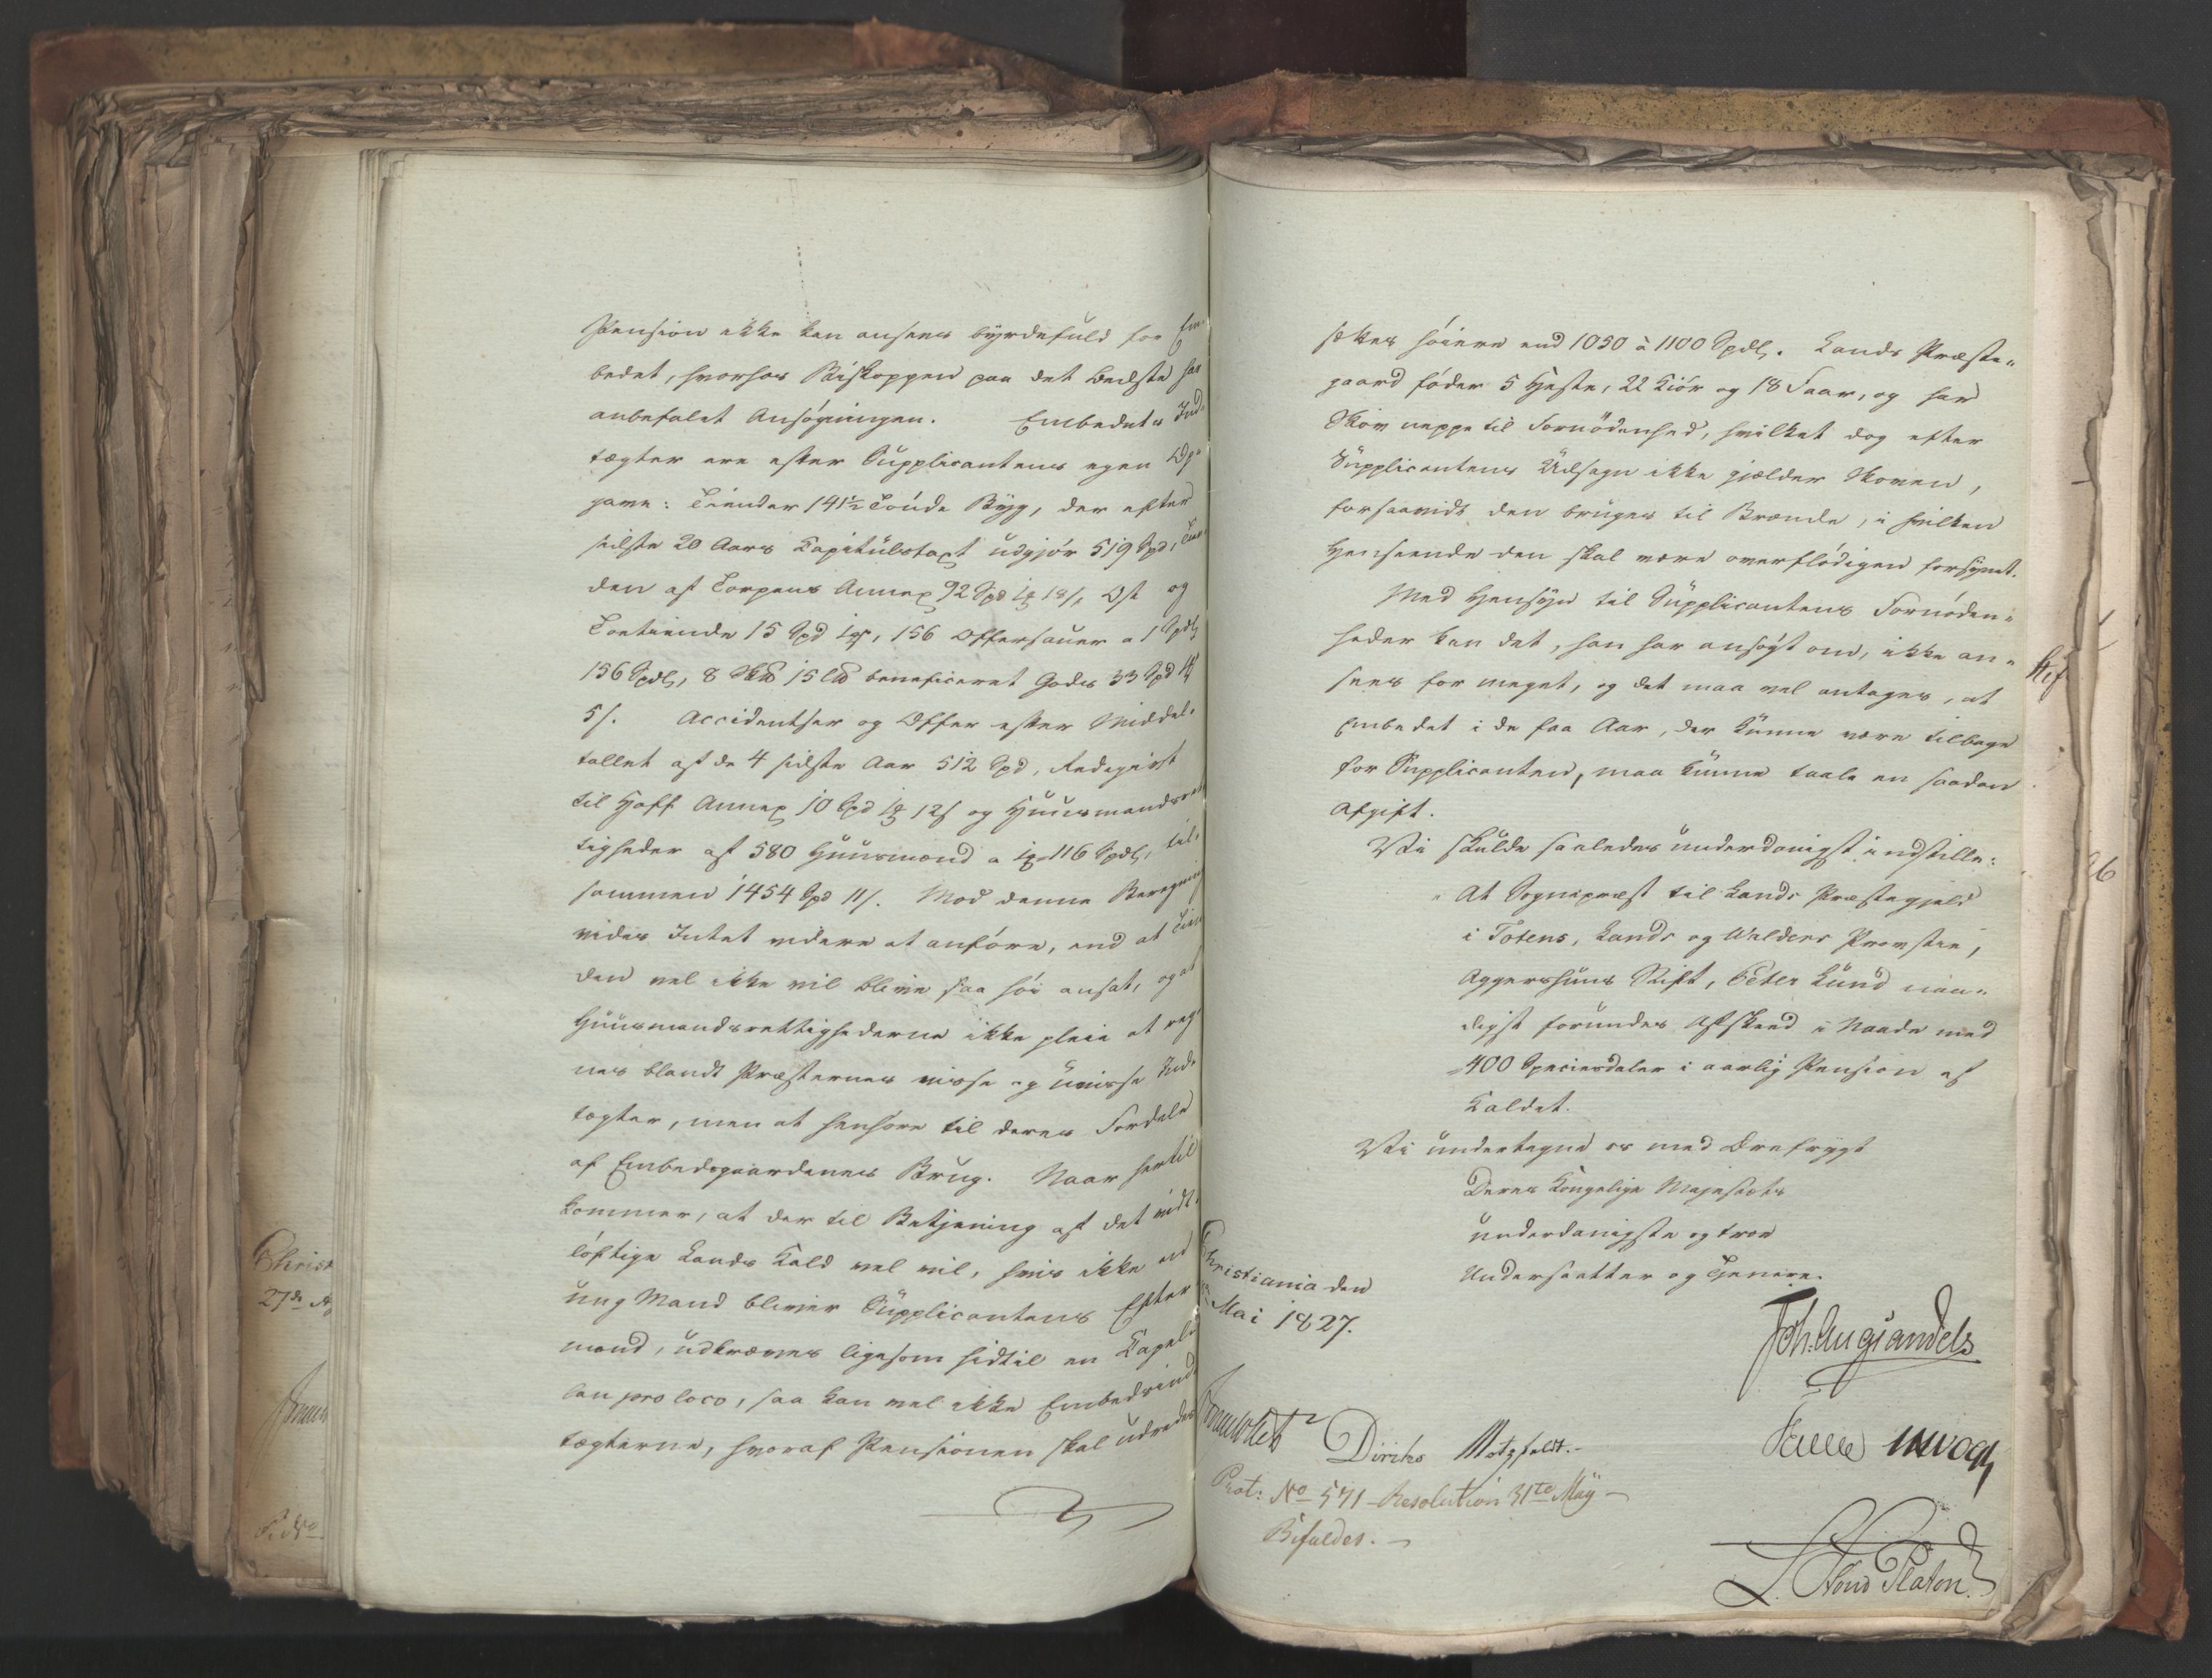 Pension ikke kan ansees byrdefuld for Em-
bedet, hvorhos Biskoppen paa det Bedste har
anbefalet Ansøgningen. Embedets Ind-
tægter ere efter Supplicantens egen Op-
gave: Tiender 141½ Tønde Byg, der efter
sidste 20 Aars Capitulstaxt udgjør 519 Spd,
den af Torpens Annex 92 Spd Ost og
Toetiende 15 Spd 156 Offersauer a 1 Spdl,
156 Spdl, 8 15 beneficeret Gods 33 Spd
5 s. Accidentser og Offer efter Middel-
tallet af de 4 sidste Aar 512 Spd,
til Hoff Annex 10 Spd 12 s og Huusmandsret-
tigheder af 580 Huusmænd a 116 Spdl, til-
sammen 1454 Spd 11 s. Mod denne Beregning
vides Intet videre at anføre, end at Tien-
den vel ikke vil blive saa høi ansat, og at
Huusmandsrettighederne ikke pleie at reg-
nes blandt Præsternes visse og uvisse Ind-
tægter, men at henhøre til deres Fordele
af Embedsgaardenes Brug. Naar hertil
kommer, at der til Betjening af det vidt-
løftige Lands Kald vel vil, hvis ikke en
ung Mand bliver Supplicantens Efter-
mand, udkræves ligesom hidtil en Capel-
lan pro loco, saa kan vel ikke Embedsind-
tægterne, hvoraf Pensionen skal udredes
sættes høiere end 1050 à 1100 Spdl. Lands Præste-
gaard føder 5 Heste, 22 Kiør og 18 Faar, og har
Skov neppe til Fornødenhed, hvilket dog efter
Supplicantens Udsagn ikke gjælder Skoven,
forsaavidt den bruges til Brænde, i hvilken
Henseende den skal være overflødigen forsynet.
Med Hensyn til Supplicantens Fornøden-
heder kan det, han har ansøgt om, ikke an-
sees for meget, og det maa vel antages, at
Embedet i de faa Aar, der kunne være tilbage
for Supplicanten, maa kunne taale en saadan
Afgift.
Vi skulde saaledes underdanigst indstille:
At Sognepræst til Lands Præstegjeld
i Totens, Lands og Walders Provstie,
Aggershuus Stift, Peter Lund naa-
digst forundes Afskeed i Naade med
400 Speciesdaler i aarlig Pension af
Kaldet.
Vi undertegne os med Ærefrygt
Deres Kongelige Majestæts
underdanigste og troe
Undersaatter og Tjenere.
Christiania den
Mai 1827.
Joh. Aug Sandels
Diriks Motzfeldt.
Prot: No 571 – Resolution 31te May –
Bifaldes. –
L. Stoud Platou
Christ
27de A